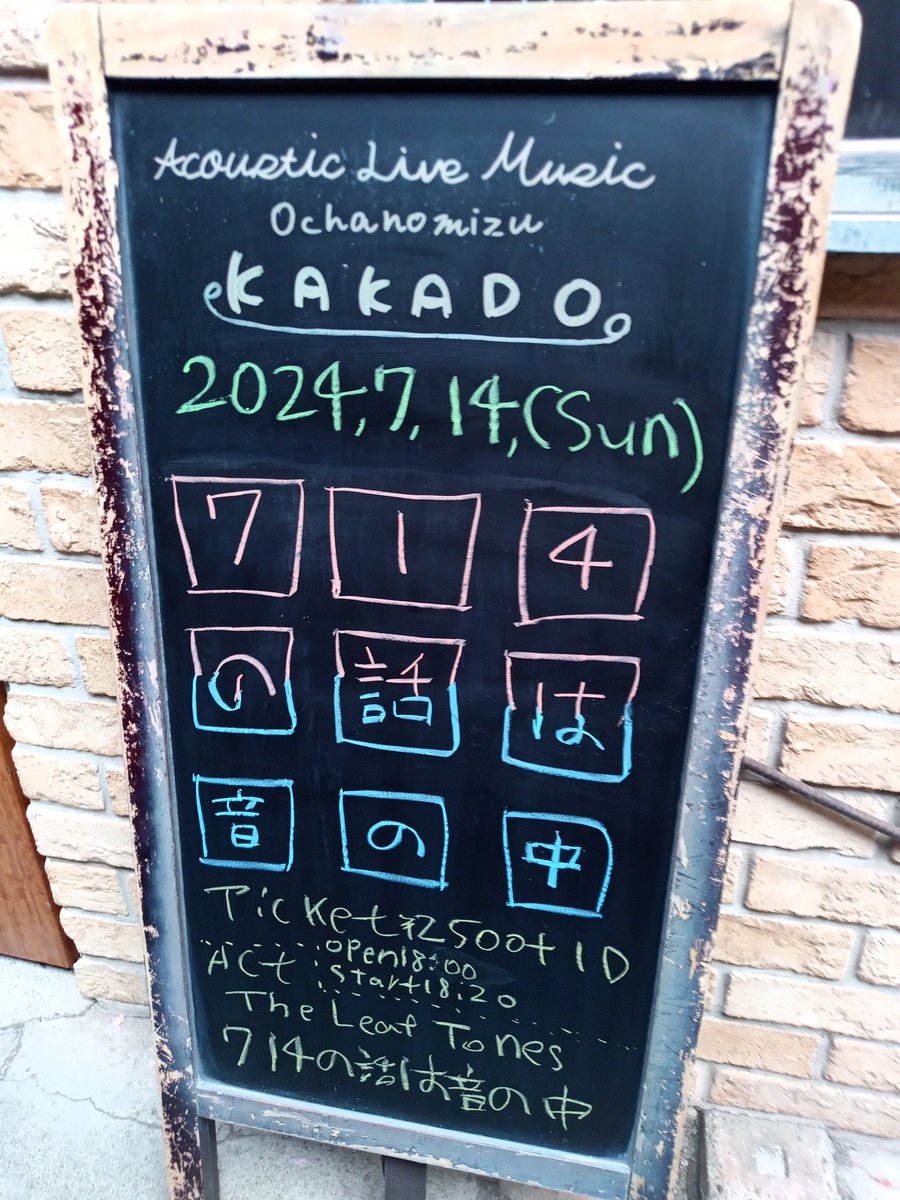 Acoustic Live Music
Ochanomizu
KAKADO
2024,7,14,(Sun)
7 1 4
の 話 は
音 の 中
Ticket ¥2500+1D
open18:00
Act
Start18:20
The Leaf Tones
714の話は音の中